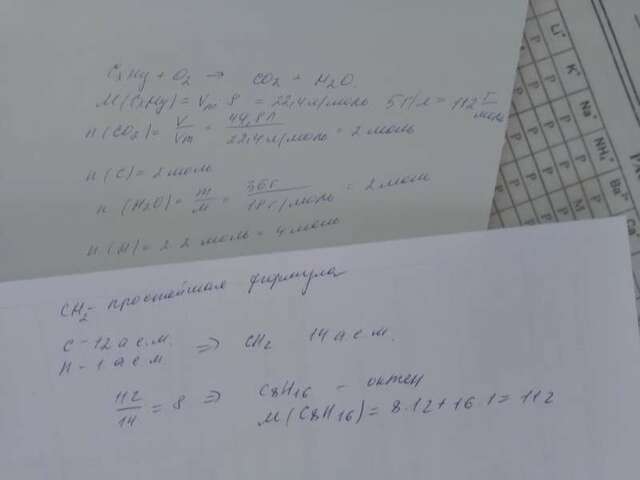 CxHy + O2 → CO2 + H2O.
M(CxHy) = Vm ρ = 22,4 л/моль 5 г/л = 112 г/моль
n(CO2) = V/Vm = 44,8 л/22,4 л/моль = 2 моль
n(C) = 2 моль
n(H2O) = m/M = 36 г/18 г/моль = 2 моль
n(H) = 2·2 моль = 4 моль
CH2 - простейшая формула
C - 12 а.е.м.
H - 1 а.е.м.
⇒ CH2 14 а.е.м.
112/14 = 8 ⇒ C8H16 - октен
M(C8H16) = 8·12 + 16·1 = 112
Li+
K+
Na+
NH4+
Ba2+
P P P P P
P P P P
P P P M